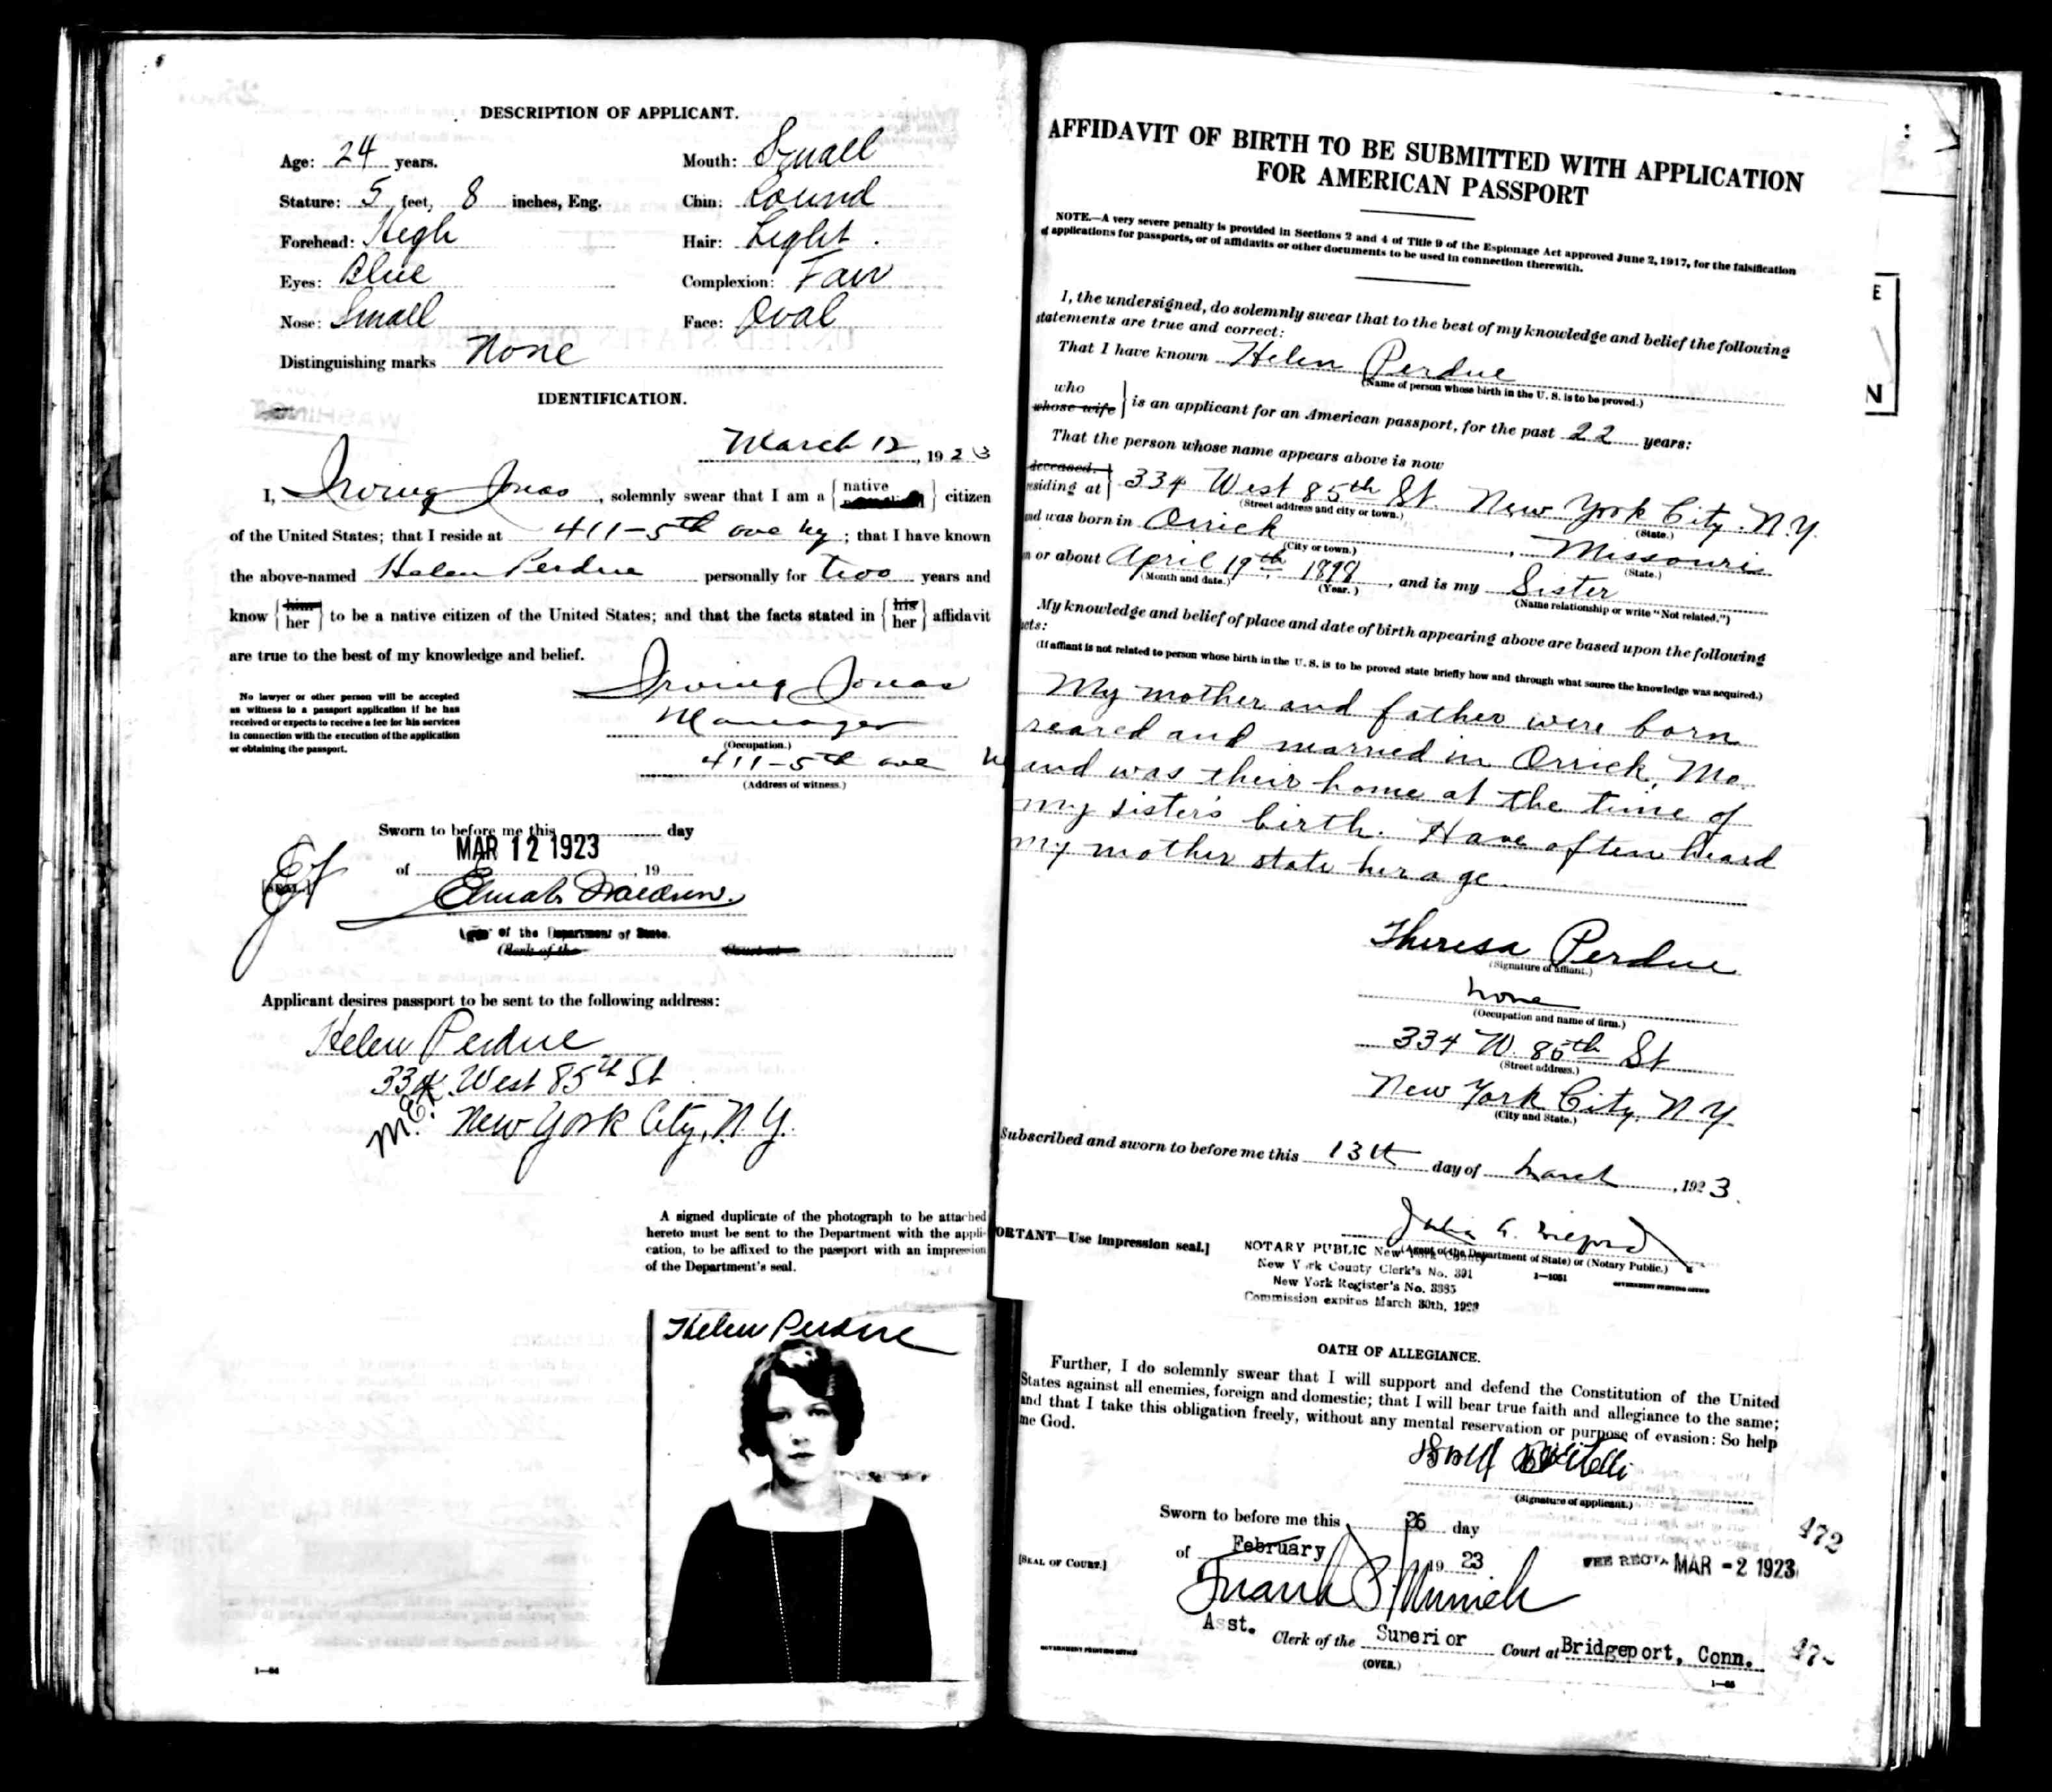 DESCRIPTION OF APPLICANT.
Age: 24 years.
Mouth: Small
Stature: 5 feet, 8 inches, Eng.
Chin: Round
Forehead: High
Hair: Light.
Eyes: Blue
Complexion: Fair
Nose: Small
Face: Oval
Distinguishing marks None
IDENTIFICATION.
March 12, 1923
I, Irving Jonas, solemnly swear that I am a native citizen
of the United States; that I reside at 411-5th ave Ny; that I have known
the above-named Helen Perdue personally for two years and
know him her to be a native citizen of the United States; and that the facts stated in his her affidavit
are true to the best of my knowledge and belief.
No lawyer or other person will be accepted
as witness to a passport application if he has
received or expects to receive a fee for his services
in connection with the execution of the application
or obtaining the passport.
Irving Jonas
Manager
(Occupation.)
411-5th ave
(Address of witness.)
Sworn to before me this day
MAR 12 1923
of , 19
[SEAL.]
of the Department of State.
Applicant desires passport to be sent to the following address:
Helen Perdue
334 West 85th St
New York City, N.Y.
A signed duplicate of the photograph to be attached
hereto must be sent to the Department with the appli-
cation, to be affixed to the passport with an impression
of the Department's seal.
Helen Perdue
AFFIDAVIT OF BIRTH TO BE SUBMITTED WITH APPLICATION
FOR AMERICAN PASSPORT
NOTE.—A very severe penalty is provided in Sections 2 and 4 of Title 9 of the Espionage Act approved June 2, 1917, for the falsification
of applications for passports, or of affidavits or other documents to be used in connection therewith.
I, the undersigned, do solemnly swear that to the best of my knowledge and belief the following
statements are true and correct:
That I have known Helen Perdue
(Name of person whose birth in the U. S. is to be proved.)
who whose wife is an applicant for an American passport, for the past 22 years:
That the person whose name appears above is now
deceased.
residing at 334 West 85th St. New York City. N.Y.
(Street address and city or town.) (State.)
and was born in Orrick, Missouri
(City or town.) (State.)
on or about April 19th 1898, and is my Sister
(Month and date.) (Year.) (Name relationship or write "Not related.")
My knowledge and belief of place and date of birth appearing above are based upon the following
facts:
(If affiant is not related to person whose birth in the U. S. is to be proved state briefly how and through what source the knowledge was acquired.)
My mother and father were born
reared and married in Orrick, Mo.
and was their home at the time of
my sister's birth. Have often heard
my mother state her age.
Theresa Perdue
(Signature of affiant.)
none
(Occupation and name of firm.)
334 W. 85th St
(Street address.)
New York City, N Y
(City and State.)
Subscribed and sworn to before me this 13th day of March, 1923.
ORTANT—Use impression seal.]
(Agent of the Department of State) or (Notary Public.)
NOTARY PUBLIC New York County
New York County Clerk's No. 391
New York Register's No. 3385
Commission expires March 30th,
1—1051
GOVERNMENT PRINTING OFFICE
OATH OF ALLEGIANCE.
Further, I do solemnly swear that I will support and defend the Constitution of the United
States against all enemies, foreign and domestic; that I will bear true faith and allegiance to the same;
and that I take this obligation freely, without any mental reservation or purpose of evasion: So help
me God.
(Signature of applicant.)
Sworn to before me this 26 day
of February 19 23
[SEAL OF COURT.]
FEE RECT. MAR -2 1923
472
Asst. Clerk of the Superior Court at Bridgeport, Conn.
GOVERNMENT PRINTING OFFICE
(OVER.)